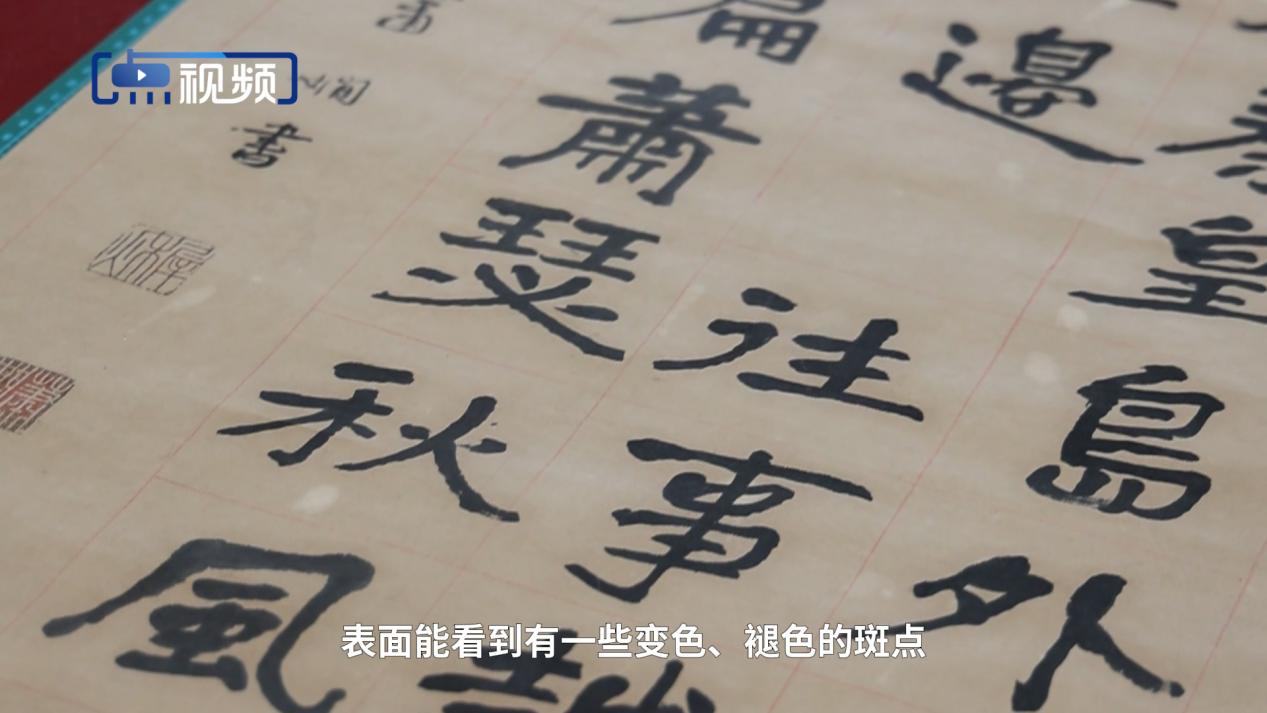 点视频
秦皇島外
邊往事越
篇蕭瑟秋風
書
表面能看到有一些变色、褪色的斑点